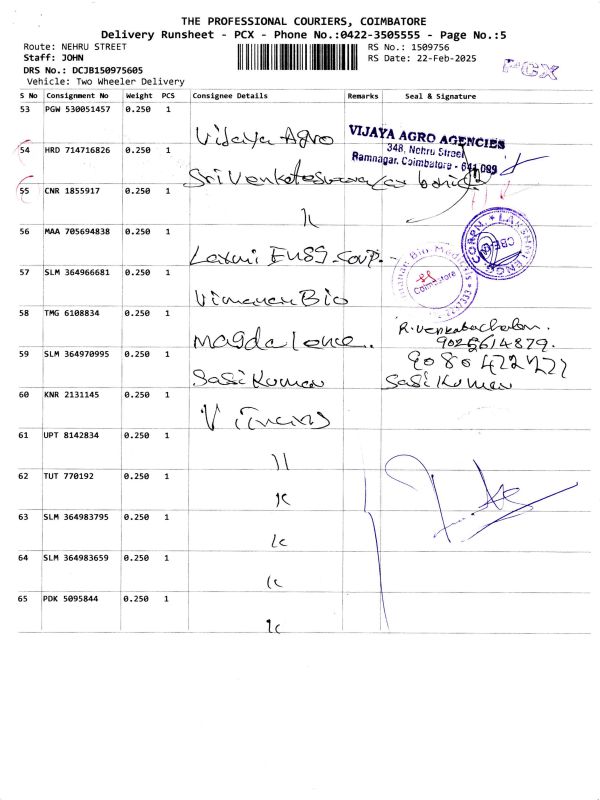 THE PROFESSIONAL COURIERS, COIMBATORE
Delivery Runsheet - PCX - Phone No.:0422-3505555 - Page No.:5
Route: NEHRU STREET
RS No.: 1509756
Staff: JOHN
RS Date: 22-Feb-2025
DRS No.: DCJB150975605
PCX
Vehicle: Two Wheeler Delivery
S No Consignment No Weight PCS Consignee Details Remarks Seal & Signature
53 PGW 530051457 0.250 1
Vijaya Agro
VIJAYA AGRO AGENCIES
348, Nehru Street
Ramnagar, Coimbatore - 641 009
54 HRD 714716826 0.250 1
Sri Venkateswara
55 CNR 1855917 0.250 1
56 MAA 705694838 0.250 1
Laxmi
LAKSHMI ENGG CORPN.
57 SLM 364966681 0.250 1
Vimanan Bio
Coimbatore
58 TMG 6108834 0.250 1
Magdalene.
R. Venkatachalam.
59 SLM 364970995 0.250 1
Sasi Kumar
Sasi Kumar
60 KNR 2131145 0.250 1
61 UPT 8142834 0.250 1
62 TUT 770192 0.250 1
63 SLM 364983795 0.250 1
64 SLM 364983659 0.250 1
65 PDK 5095844 0.250 1